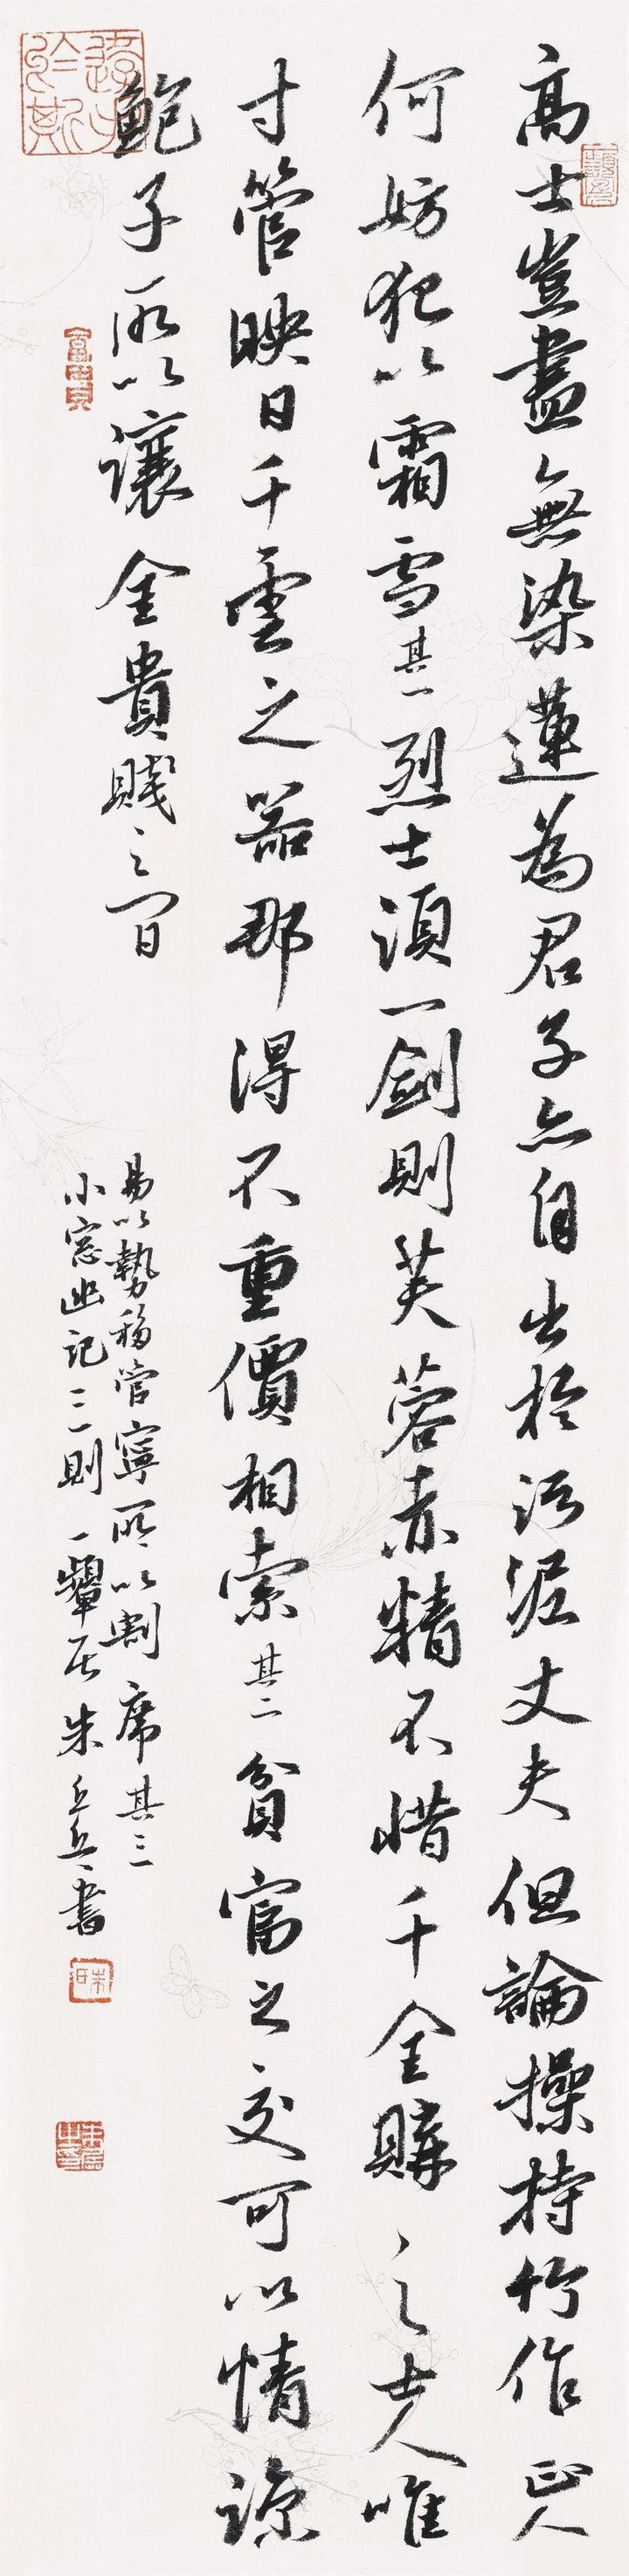 高士豈盡無染蓮為君子亦自出於污泥丈夫但論操持竹作正人
何妨犯以霜雪其一烈士須一劍則芙蓉赤精不惜千金購之士人唯
寸管映日干雲之器那得不重價相索其二貧官之交可以情諒
鮑子所以讓金貴賤之間
易以勢移管寧所以割席其三
小窓幽記三則一顰居朱乒乓書